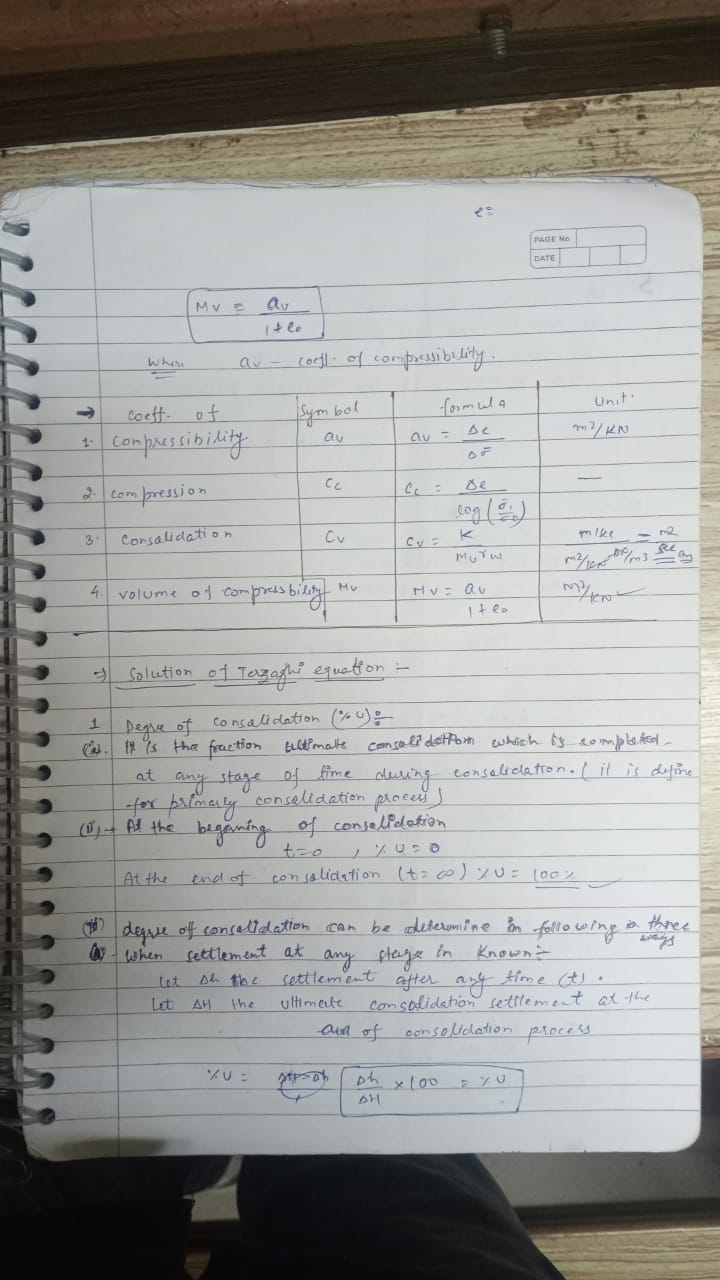 e=
PAGE No
DATE
Mv = av / 1+e0
where av - coeff. of compressibility.
→ coeff. of | Symbol | formula | Unit.
1. compressibility | av | av = Δe / Δσ̄ | m2/KN
2. compression | Cc | Cc = Δe / log (σ̄1/σ̄0) | —
3. Consalidation | Cv | Cv = K / Mv γw | m/sec / m2/KN KN/m3 = m2 / sec
4. volume of compressbility | Mv | Mv = av / 1+e0 | m2/KN
⇒ Solution of Terzaghi equation :-
1 Degree of consalidation (% U) :-
(i). It is the fraction ultimate consolidation which is completed
at any stage of time during consolidation. ( it is define
for primary consolidation process)
(ii) → At the beganing of consolidation
t=0 , % U = 0
At the end of consalidation (t= ∞) % U = 100%
(iii) degree of consolidation can be determine in following three ways
(a) - when settlement at any stage in Known :-
Let Δh the settlement after any time (t).
Let ΔH the ultimate consolidation settlement at the
end of consolidation process
% U = Δh / ΔH × 100 = % U